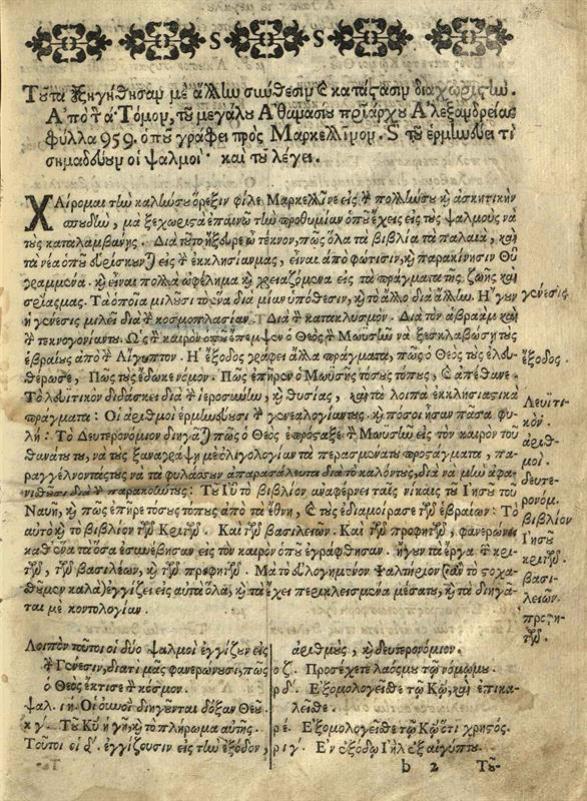 Τοῦτα ἐξηγήθησαν μὲ ἄλλην σύνθεσιν ϗ κατάστασιν διαχωριστὴν.
Ἀπὸ τὰ Τόμον, τοῦ μεγάλου Ἀθανασίου πριάρχου Ἀλεξανδρείας
φύλλα 959. ὁποῦ γράφει πρὸς Μαρκελλῖνον. S τοῦ ἑρμηνεύει τί
σημαδεύουν οἱ ψαλμοί· καὶ τοῦ λέγει.
ΧΑίρομαι τὴν καλήν σου ὄρεξιν φίλε Μαρκελλῖνε εἰς τ πολλήν σου ϗ ἀσκητικὴν
σπουδὴν, μὰ ξεχωριστὰ ἐπαινῶ τὴν προθυμίαν ὁποῦ ἔχεις εἰς τοὺς ψαλμοὺς νὰ
τοὺς καταλαμβάνῃς. Διὰ τοῦτο ἤξευρε ὦ τέκνον, πῶς ὅλα τὰ βιβλία τὰ παλαιὰ, καὶ
τὰ νέα ὁποῦ εὑρίσκουνται εἰς τ ἐκκλησίαν μας, εἶναι ἀπὸ φώτισιν, ϗ παρακίνησιν Θῦ
γραμμένα. ϗ εἶναι πολλὰ ὠφέλημα ϗ χρειαζόμενα εἰς τὰ πράγματα τῆς ζωῆς καὶ
Τὰ ὁποῖα μιλοῦσι τὸ ἕνα διὰ μίαν ὑπόθεσιν, ϗ τὸ ἄλλο διὰ ἄλλην. Ἤγουν
ἡ γένεσις μιλεῖ διὰ τ κοσμοπλασίαν. Διὰ τ κατακλυσμὸν. Διὰ τὸν ἀβραὰμ καὶ
τ τεκνογονίαν του. Ὡς τ καιρὸν ὁποῦ ἔπεμψεν ὁ Θεὸς τ Μωυσῆν νὰ ξεσκλαβώσῃ τοὺς
ἑβραίους ἀπὸ τ Αἴγυπτον. Ἡ ἔξοδος γράφει ἄλλα πράγματα, πῶς ὁ Θεὸς τοὺς ἐλευ-
θέρωσε, Πῶς τοὺς ἔδωκε νόμον. Πῶς ἐπῆρεν ὁ Μωϋσῆς τόσους τόπους, ϗ ἀπέθανε.
Τὸ λευιτικὸν διδάσκει διὰ τ ἱεροσύνην, ϗ θυσίας, καὶ τὰ λοιπὰ ἐκκλησιαστικὰ
πράγματα: Οἱ ἀριθμοὶ ἑρμηνεύουσι τ γενεαλογίαν τους, ϗ πόσοι ἦσαν πᾶσα φυ-
λή: Τὸ Δευτερονόμιον διηγᾶται πῶς ὁ Θεὸς ἐπρόσταξε τ Μωυσῆν εἰς τὸν καιρὸν τοῦ
θανάτου του, νὰ τοὺς ξαναγράψῃ μὲ ὀλιγολογίαν τὰ περασμένα του προστάγματα, πα-
ραγγέλνοντάς τους νὰ τὰ φυλάσσουν ἀπαρασάλευτα διὰ τὸ καλόν τους, διὰ νὰ μὴν ἀφα-
νισθοῦσι διὰ τ παρακοήν τους: Τοῦ Ἰῦ τὸ βιβλίον ἀναφέρνει ταῖς νίκαις τοῦ Ἰησοῦ τοῦ
Ναυῆ, ϗ πῶς ἐπῆρε τόσους τόπους ἀπὸ τὰ ἔθνη, ϗ τοὺς ἐδιαμοίρασε τῶν ἑβραίων: Τὸ
αὐτὸ ϗ τὸ βιβλίον τῶν Κριτῶν. Καὶ τῶν βασιλειῶν. Καὶ τῶν προφητῶν, φανερώνει
καθένα τὰ ὅσα ἐσυνέβησαν εἰς τὸν καιρὸν ὁποῦ ἐγράφθησαν. ἤγουν τὰ ἔργα τ κρι-
τῶν, τῶν βασιλέων, ϗ τῶν προφητῶν. Μὰ τὸ εὐλογημένον Ψαλτήριον (ἂν τὸ στοχα-
θοῦμεν καλὰ) ἐγγίζει εἰς αὐτὰ ὅλα, ϗ τὰ ἔχει περικλεισμένα μέσα του, ϗ τὰ διηγᾶ-
ται μὲ κοντολογίαν.
γένεσις
ἔξοδος.
Λευϊτι-
κόν.
ἀριθ-
μοί.
δευτε-
ρονόμ.
βιβλίον
Ἰησοῦ
κριτῶν.
βασι-
λειῶν.
προφη-
τῶν.
Λοιπὸν τοῦτοι οἱ δύο ψαλμοὶ ἐγγίζουν εἰς
τ Γένεσιν, διατὶ μᾶς φανερώνουσι, πῶς
ὁ Θεὸς ἔκτισε τ κόσμον.
ψαλ. ιη. Οἱ οὐνοὶ διηγοῦνται δόξαν Θεοῦ.
κγ. Τοῦ Κῦ ἡ γῆ, ϗ τὸ πλήρωμα αὐτῆς.
Τοῦτοι οἱ δ. ἐγγίζουσιν εἰς τὴν ἔξοδον,
ἀριθμοὺς, ϗ δευτερονόμιον.
οζ. Προσέχετε λαός μου τῷ νόμῳ μου.
ρδ. Ἐξομολογεῖσθε τῷ Κῳ, καὶ ἐπικα-
λεῖσθε.
ρέ. Ἐξομολογεῖσθε τῷ Κῳ ὅτι χρηστός.
ριγ. Ἐν ἐξόδῳ Ἰηλ ἐξ αἰγύπτου.
b 2 Τοῦ-